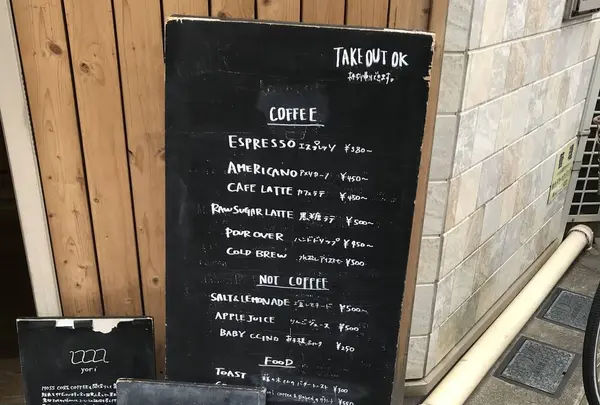 TAKE OUT OK
お持ち帰りできます。
COFFEE
ESPRESSO エスプレッソ ¥380~
AMERICANO アメリカーノ ¥450~
CAFE LATTE カフェラテ ¥450~
RAW SUGAR LATTE 黒糖ラテ ¥500~
POUR OVER ハンドドリップ ¥450~
COLD BREW ¥500
NOT COFFEE
SALT & LEMONADE 塩レモネード ¥500~
APPLE JUICE りんごジュース ¥500
BABY CCINO ¥250
FOOD
TOAST バタートースト ¥300
yori